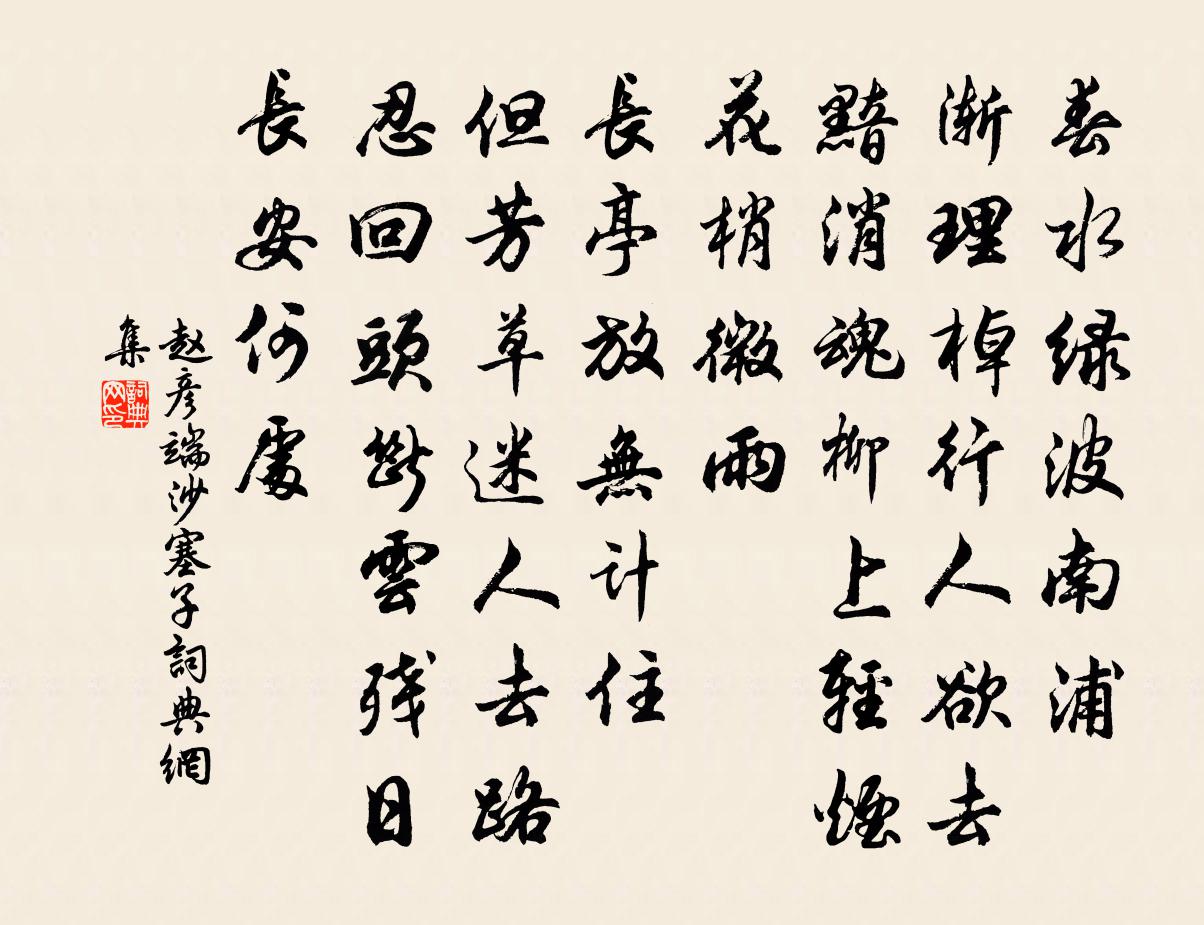 春水绿波南浦
渐理棹行人欲去
黯消魂柳上輕煙
花梢微雨
長亭放無計住
但芳草迷人去路
忍回頭斷雲残日
長安何處
赵彦端沙塞子詞典網
集
詞典
网印